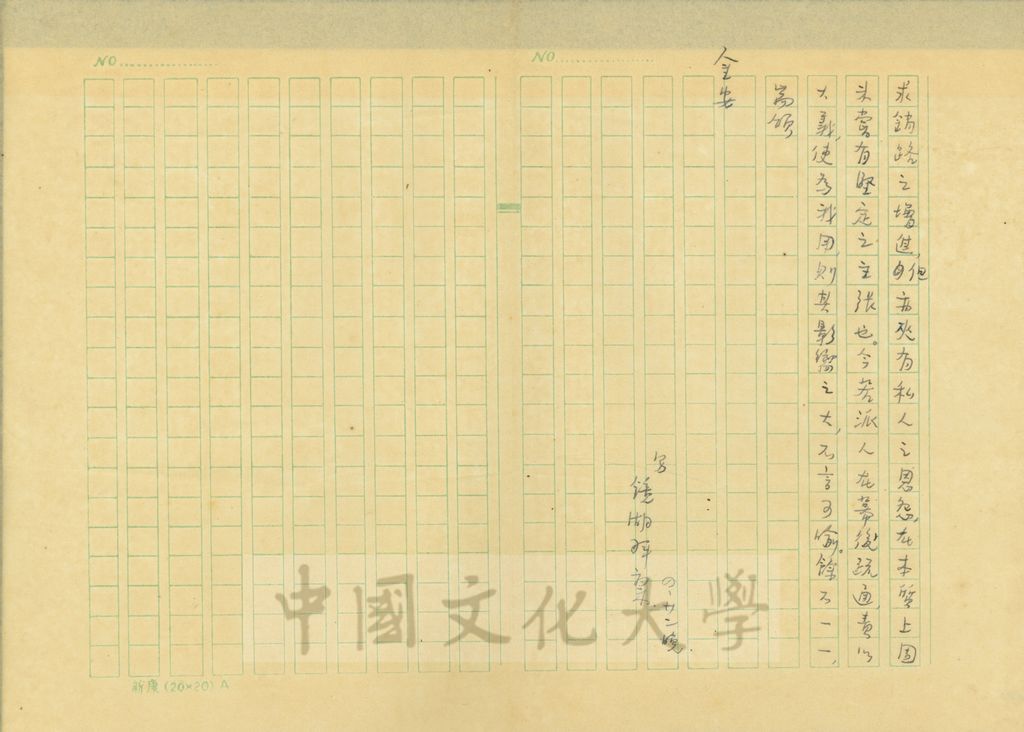 NO
NO
求銷路之增進,但亦夾有私人之恩怨,在本質上固
未嘗有堅定之主張也。今若派人在幕後疏通,責以
大義,使為我用,則其影響之大,不言可喻。餘不一一,
耑頌
全安
鏡湖拜
廿二晚
新康(20×20)A
中國文化大學